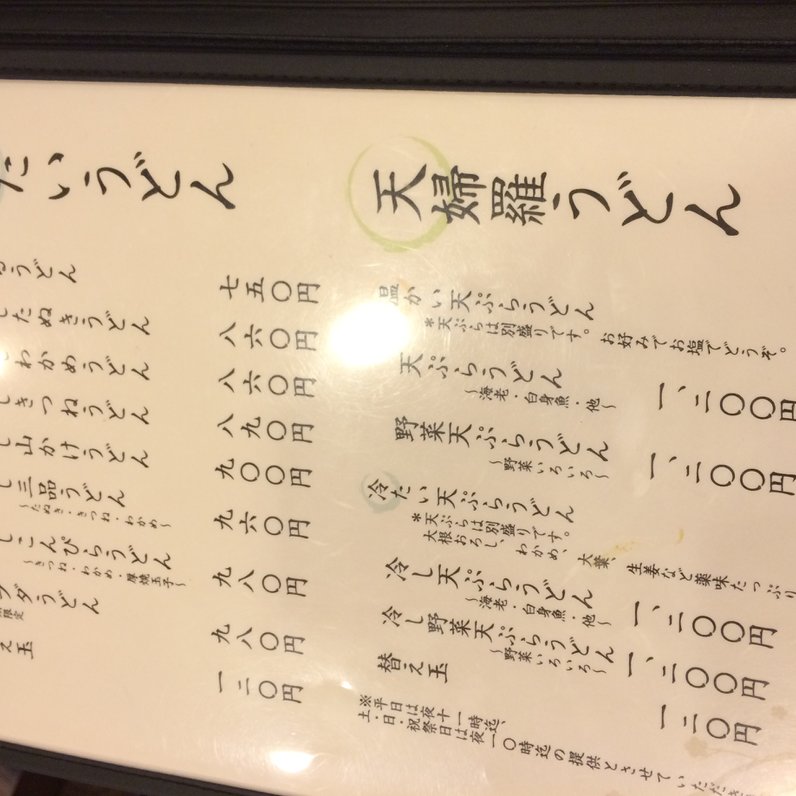 天婦羅うどん
温かい天ぷらうどん
*天ぷらは別盛りです。お好みでお塩でどうぞ。
天ぷらうどん
〜海老・白身魚・他〜
一、二〇〇円
野菜天ぷらうどん
〜野菜いろいろ〜
一、二〇〇円
冷たい天ぷらうどん
*天ぷらは別盛りです。
大根おろし、わかめ、大葉、生姜など薬味たっぷり
冷し天ぷらうどん
〜海老・白身魚・他〜
一、二〇〇円
冷し野菜天ぷらうどん
〜野菜いろいろ〜
一、二〇〇円
替え玉
一二〇円
※平日は夜十一時迄、
土・日・祝祭日は夜一〇時迄の提供とさせていただき
たいうどん
うどん
七五〇円
したぬきうどん
八六〇円
わかめうどん
八六〇円
しきつねうどん
八九〇円
し山かけうどん
九〇〇円
し三品うどん
〜たぬき・きつね・わかめ〜
九六〇円
しこんぴらうどん
〜きつね・わかめ・厚焼玉子〜
九八〇円
ダうどん
限定
九八〇円
え玉
一二〇円